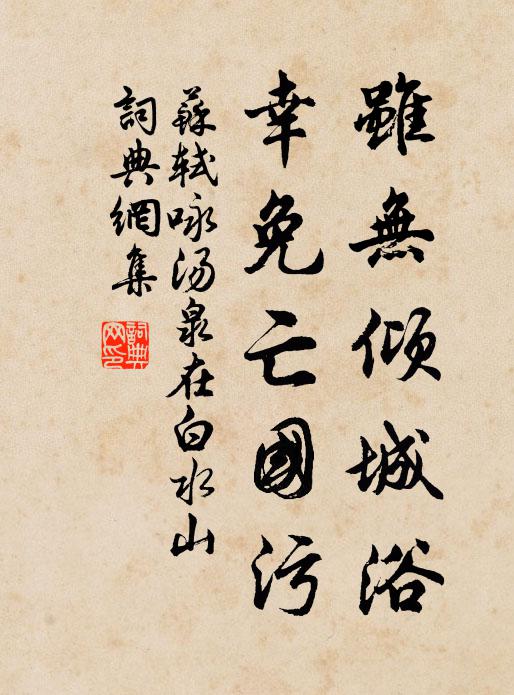 雖無傾城浴
幸免亡國污
蘇軾咏湯泉在白水山
詞典網集
詞典網印